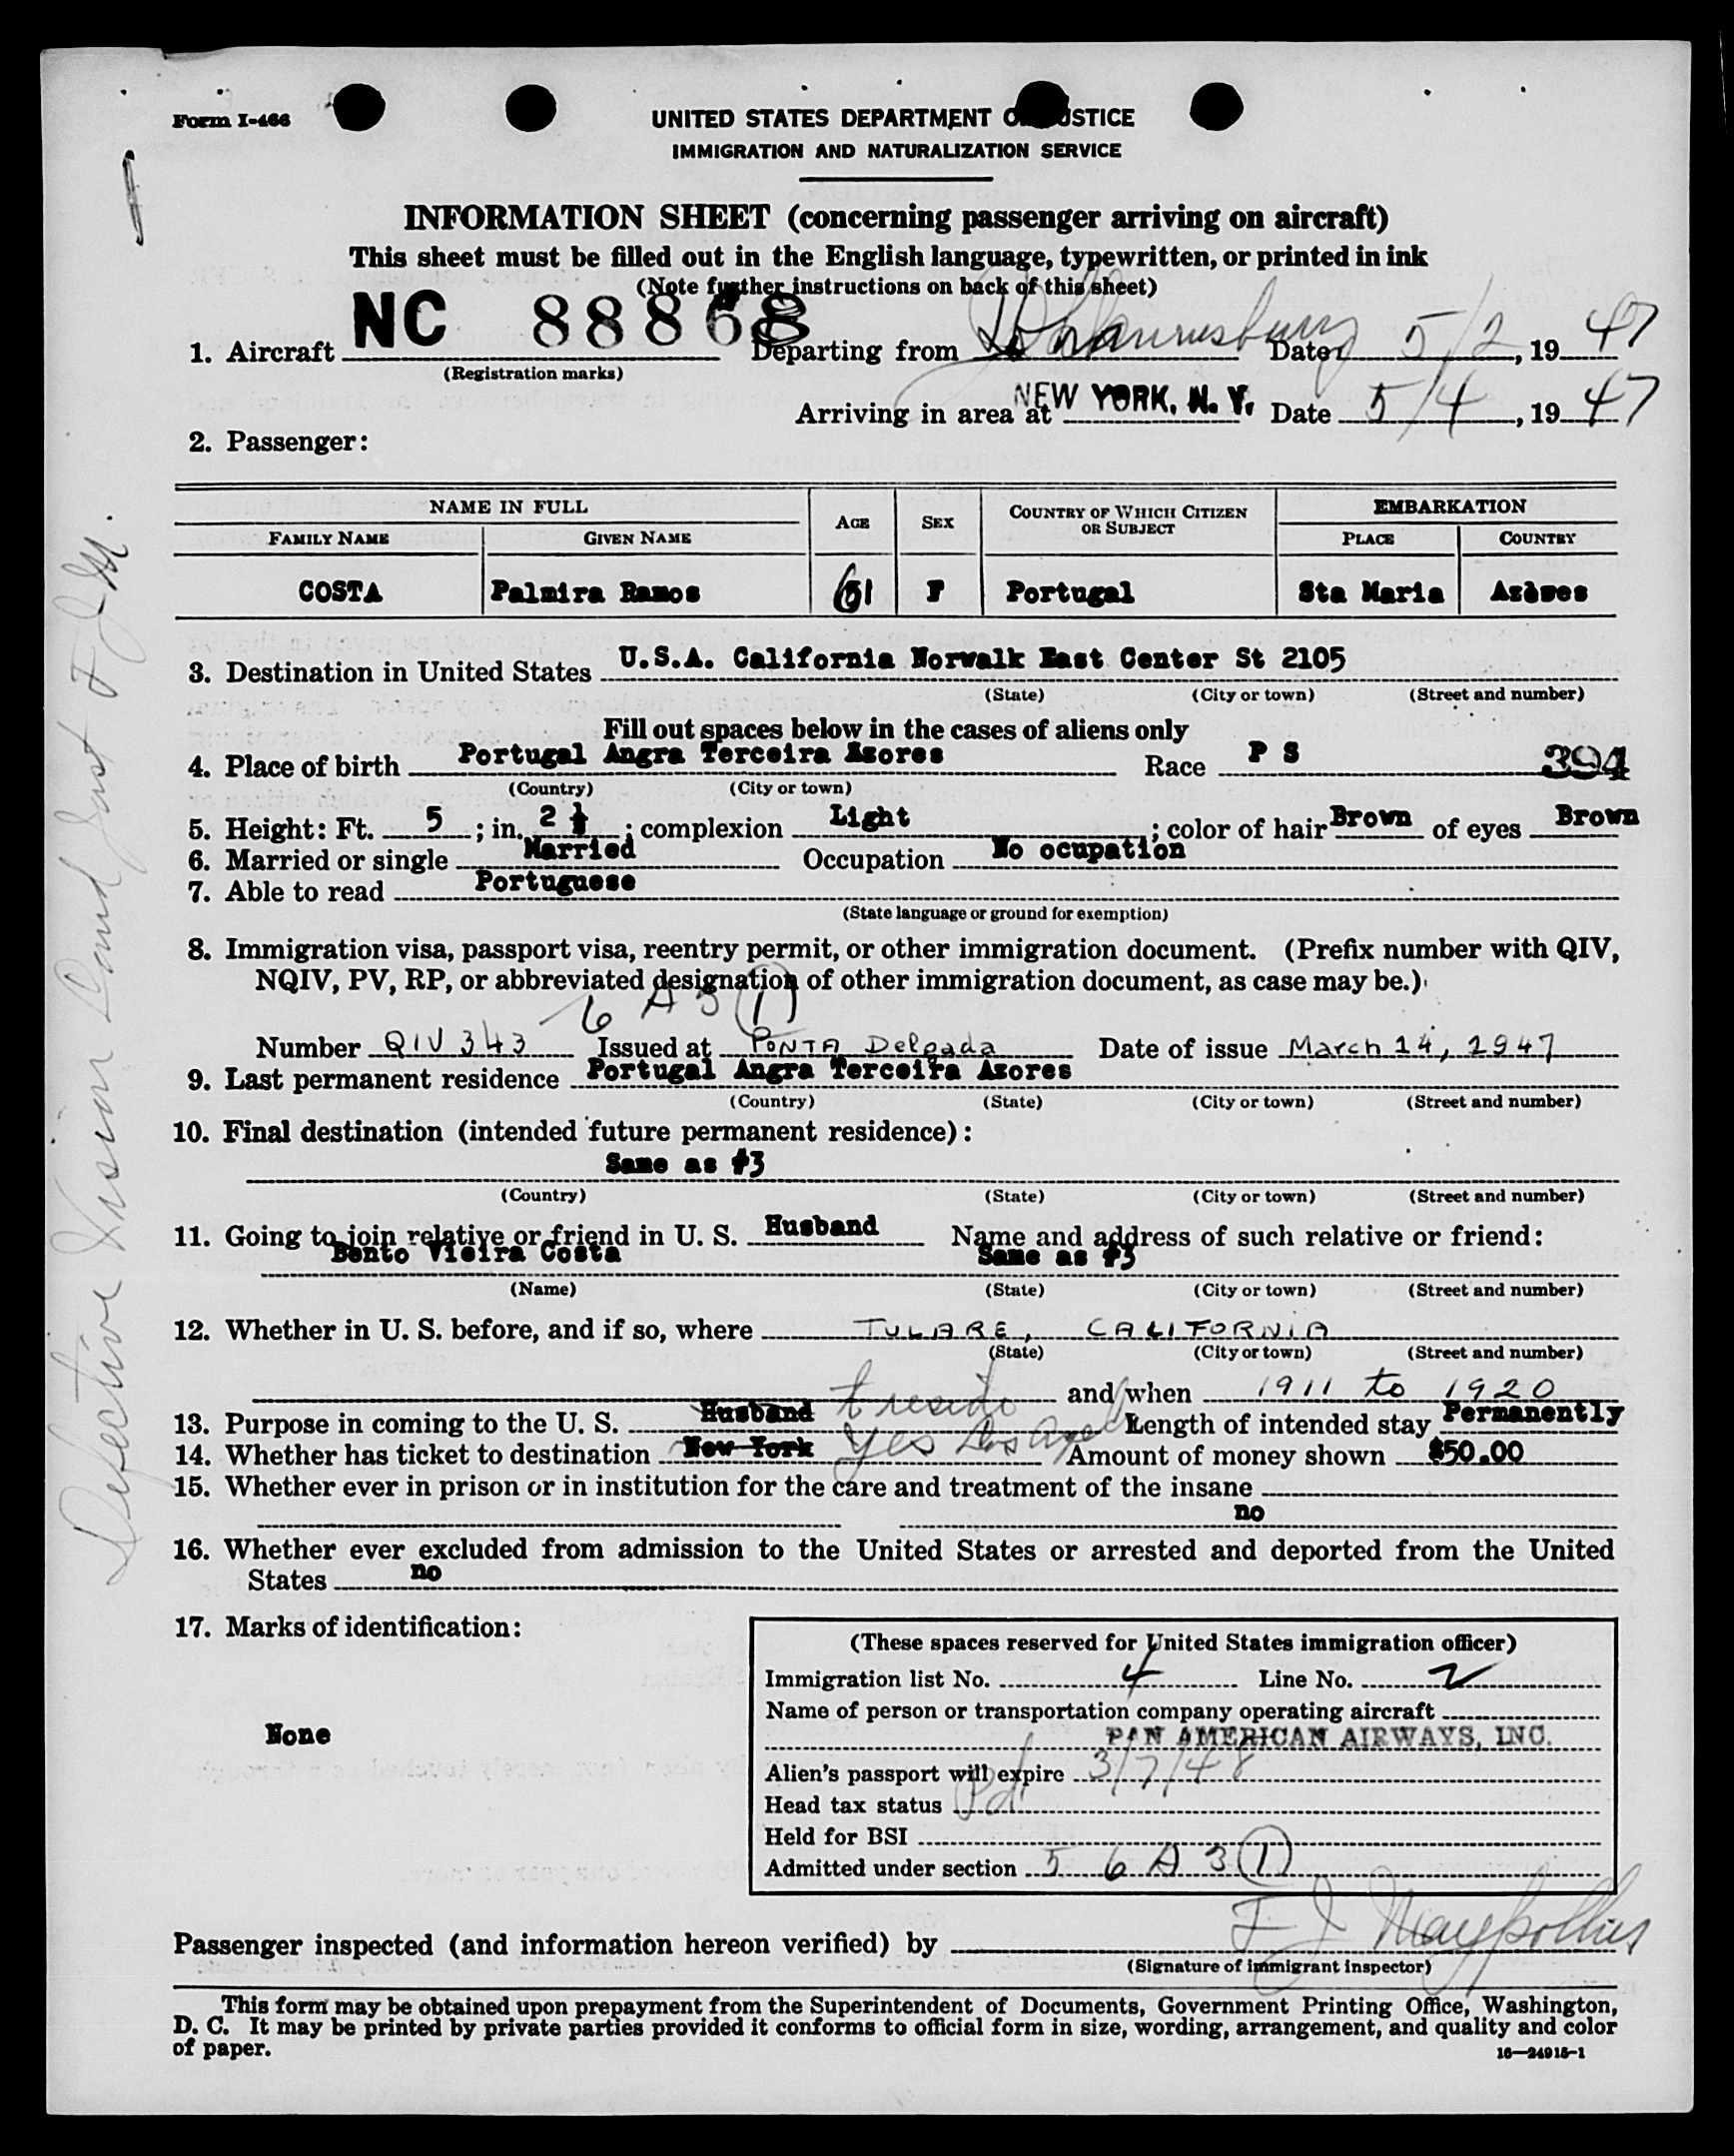 Form I-466
UNITED STATES DEPARTMENT OF JUSTICE
IMMIGRATION AND NATURALIZATION SERVICE
INFORMATION SHEET (concerning passenger arriving on aircraft)
This sheet must be filled out in the English language, typewritten, or printed in ink
(Note further instructions on back of this sheet)
1. Aircraft NC 88868 Departing from Date 5/2, 1947
(Registration marks)
Arriving in area at NEW YORK, N. Y. Date 5/4, 1947
2. Passenger:
NAME IN FULL AGE SEX COUNTRY OF WHICH CITIZEN OR SUBJECT EMBARKATION
FAMILY NAME GIVEN NAME PLACE COUNTRY
COSTA Palmira Ramos 61 F Portugal Sta Maria Azores
3. Destination in United States U.S.A. California Norwalk East Center St 2105
(State) (City or town) (Street and number)
Fill out spaces below in the cases of aliens only
4. Place of birth Portugal Angra Terceira Azores Race P S 394
(Country) (City or town)
5. Height: Ft. 5; in. 2 ½; complexion Light; color of hair Brown of eyes Brown
6. Married or single Married Occupation No ocupation
7. Able to read Portuguese
(State language or ground for exemption)
8. Immigration visa, passport visa, reentry permit, or other immigration document. (Prefix number with QIV,
NQIV, PV, RP, or abbreviated designation of other immigration document, as case may be.)
6 A 3 (1)
Number QIV 343 Issued at PONTA Delgada Date of issue March 14, 1947
9. Last permanent residence Portugal Angra Terceira Azores
(Country) (State) (City or town) (Street and number)
10. Final destination (intended future permanent residence):
Same as #3
(Country) (State) (City or town) (Street and number)
11. Going to join relative or friend in U. S. Husband Name and address of such relative or friend:
Bento Vieira Costa Same as #3
(Name) (State) (City or town) (Street and number)
12. Whether in U. S. before, and if so, where TULARE, CALIFORNIA
(State) (City or town) (Street and number)
and when 1911 to 1920
13. Purpose in coming to the U. S. Husband to reside Length of intended stay Permanently
14. Whether has ticket to destination New York Yes Los Angel Amount of money shown $50.00
15. Whether ever in prison or in institution for the care and treatment of the insane
no
16. Whether ever excluded from admission to the United States or arrested and deported from the United
States no
17. Marks of identification:
None
(These spaces reserved for United States immigration officer)
Immigration list No. 4 Line No. 2
Name of person or transportation company operating aircraft
PAN AMERICAN AIRWAYS, INC.
Alien's passport will expire 3/7/48
Head tax status Pd
Held for BSI
Admitted under section 5 6 A 3 (1)
Passenger inspected (and information hereon verified) by F J
(Signature of immigrant inspector)
This form may be obtained upon prepayment from the Superintendent of Documents, Government Printing Office, Washington,
D. C. It may be printed by private parties provided it conforms to official form in size, wording, arrangement, and quality and color
of paper.
16—24915-1
Defective Vision